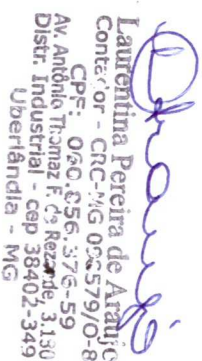 Laurentina Pereira de Araujo
Contador - CRC-MG 036579/O-8
CPF: 020.856.376-59
Av. Antônio Thomaz F. de Rezende, 3.180
Distr. Industrial - cep 38402-349
Uberlândia - MG